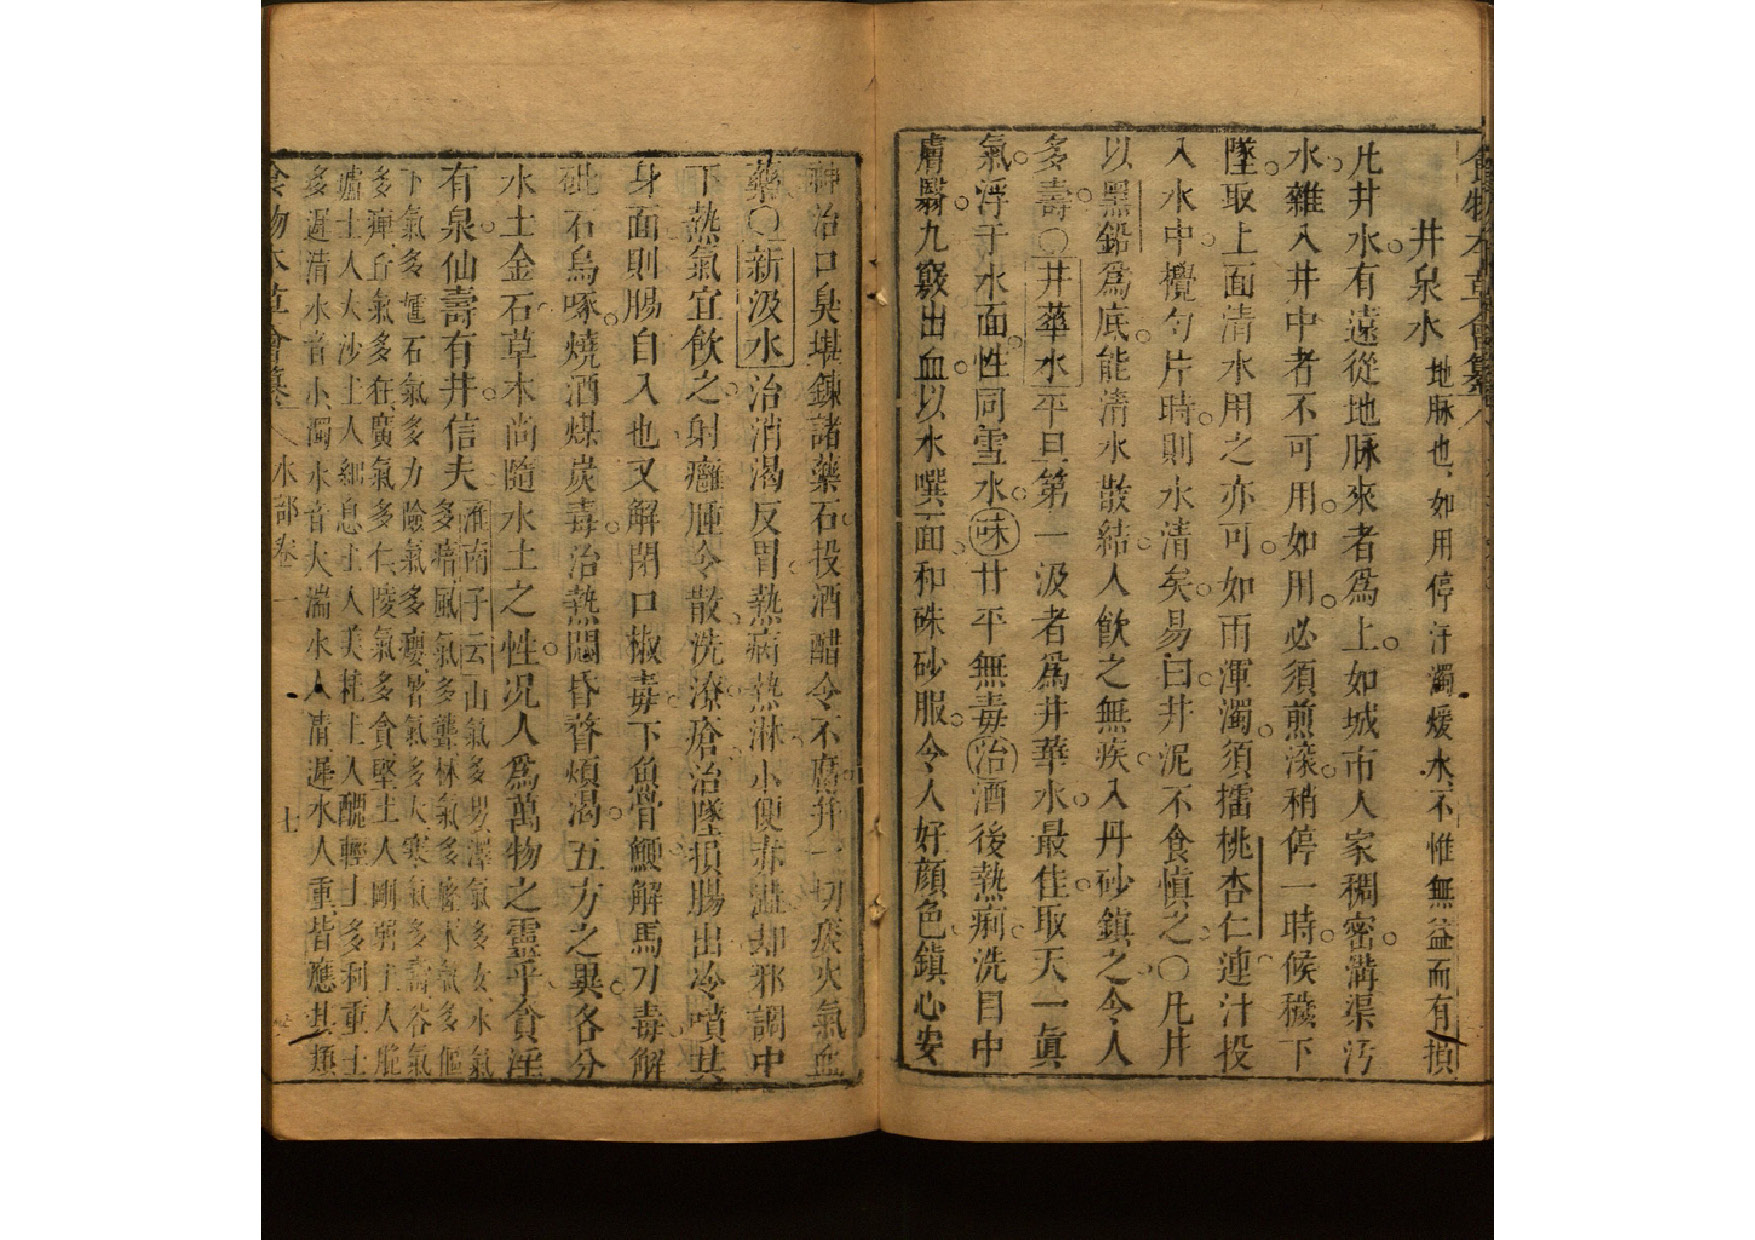 食物本草會纂
井泉水 地脉也、如用停汙濁煖水、不惟無益而有損
凡井水有遠從地脉來者爲上如城市人家稠密溝渠汚
水雜入井中者不可用如用必須煎滾稍停一時候穢下
墜取上面清水用之亦可如雨渾濁須擂桃杏仁連汁投
入水中攪勻片時則水清矣易曰井泥不食慎之○凡井
以黑鉛爲底能清水散結人飲之無疾入丹砂鎮之令人
多壽○井華水平旦第一汲者爲井華水最佳取天一眞
氣浮于水面性同雪水味甘平無毒治酒後熱痢洗目中
膚翳九竅出血以水噀面和硃砂服令人好顔色鎮心安
神治口臭堪鍊諸藥石投酒醋令不腐幷一切痰火氣血
藥○新汲水治消渴反胃熱痢熱淋小便赤澁却邪調中
下熱氣宜飲之射癰腫令散洗漆瘡治墜損腸出冷噴其
身面則腸自入也又解閉口椒毒下魚骨鯁解馬刀毒解
砒石烏啄燒酒煤炭毒治熱悶昏瞀煩渴五方之異各分
水土金石草木尚隨水土之性况人爲萬物之靈乎貪淫
有泉仙壽有井信夫 淮南子云山氣多男澤氣多女水氣
多瘖風氣多聾林氣多癃木氣多傴
下氣多尰石氣多力險氣多癭暑氣多夭寒氣多壽谷氣
多痺丘氣多狂廣氣多仁陵氣多貪堅土人剛弱土人脆
壚土人大沙土人細息土人美秏土人醜輕土多利重土
多遲清水音小濁水音大湍水人清遲水人重皆應其類
食物本草會纂 水部卷一 七